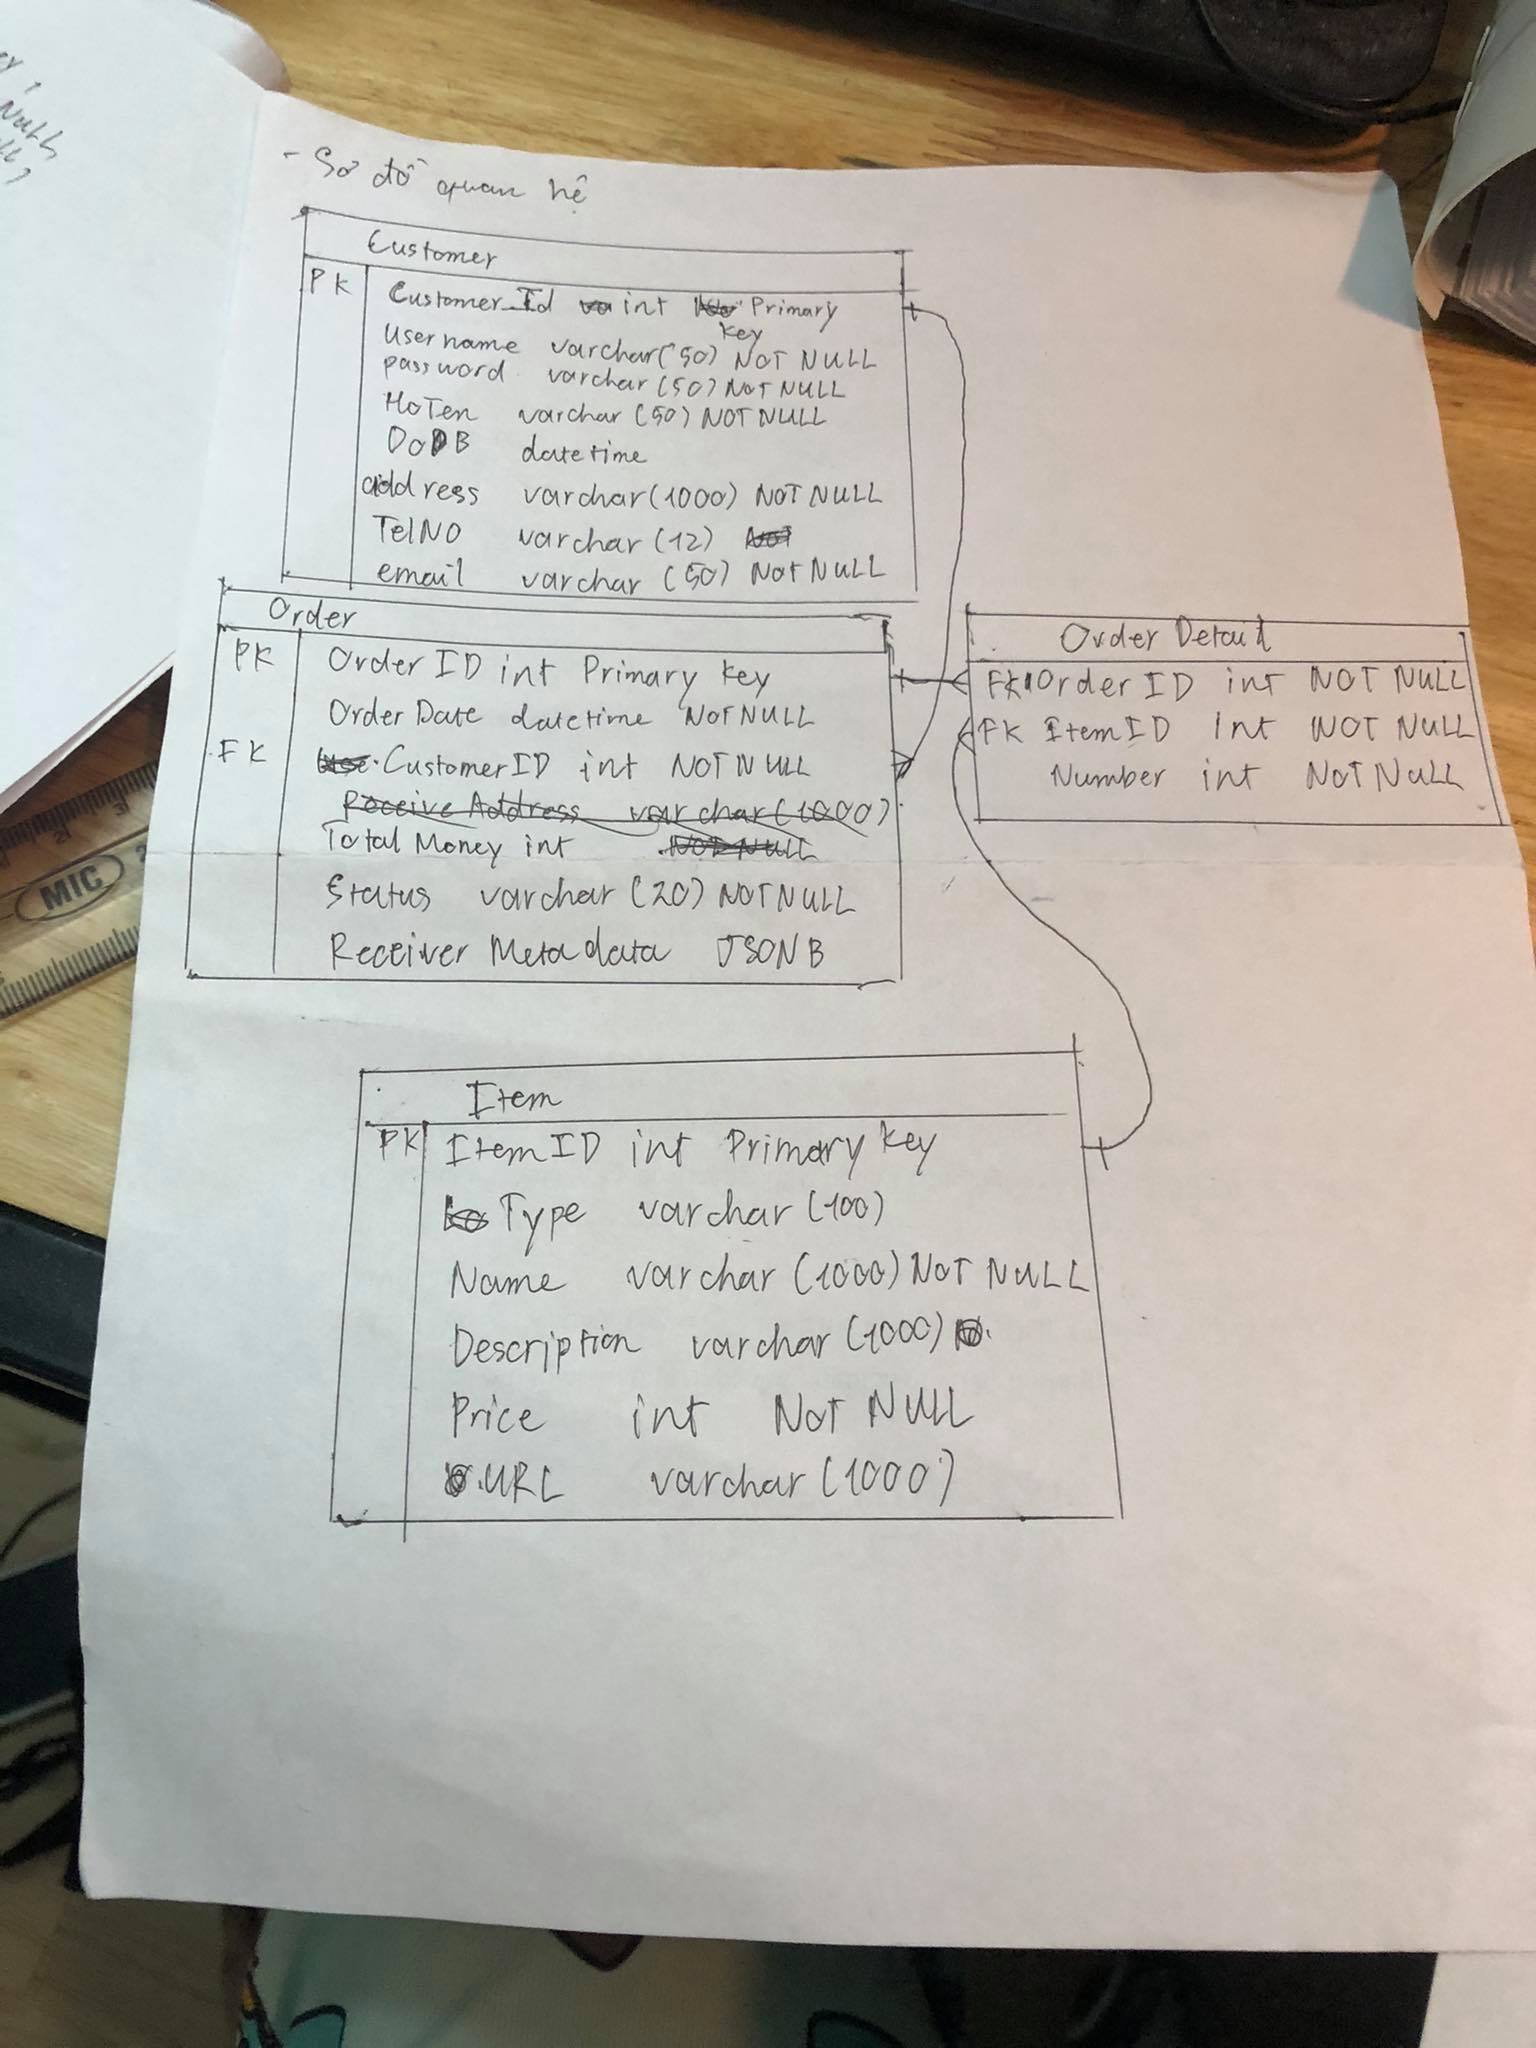 - Sơ đồ quan hệ
Customer
PK Customer_Id int Primary
key
Username varchar(50) NOT NULL
password varchar(50) NOT NULL
HoTen varchar(50) NOT NULL
DoB datetime
address varchar(1000) NOT NULL
TelNO varchar(12) NOT
email varchar(50) NOT NULL
Order
PK OrderID int Primary key
OrderDate datetime NOT NULL
FK CustomerID int NOT NULL
Receive Address varchar(1000)
Total Money int NOT NULL
Status varchar(20) NOT NULL
Receiver Metadata JSONB
Order Detail
FK OrderID int NOT NULL
FK ItemID int NOT NULL
Number int NOT NULL
Item
PK ItemID int Primary key
Type varchar(100)
Name varchar(1000) NOT NULL
Description varchar(1000)
Price int NOT NULL
URL varchar(1000)
NULL,
MIC